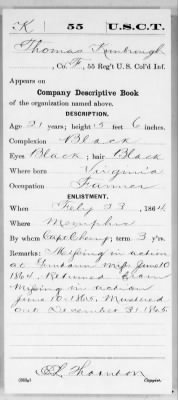 K 55 U.S.C.T.
Thomas Kimbrough
, Co. F, 55 Reg't U. S. Col'd Inf.
Appears on
Company Descriptive Book
of the organization named above.
DESCRIPTION.
Age 21 years; height 5 feet 6 inches.
Complexion Black
Eyes Black; hair Black
Where born Virginia
Occupation Farmer
ENLISTMENT.
When Feby 23, 1864
Where Memphis
By whom Capt; term 3 y'rs.
Remarks: Missing in action
at Miss June 10
1864. Returned from
Missing in action
June 10. 1865. Mustered
out December 31 1865
Thornton
Copyist.